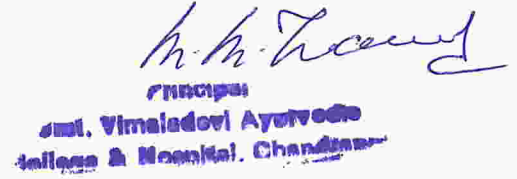 Principal
Smt. Vimaladevi Ayurvedic
College & Hospital, Chandrapur